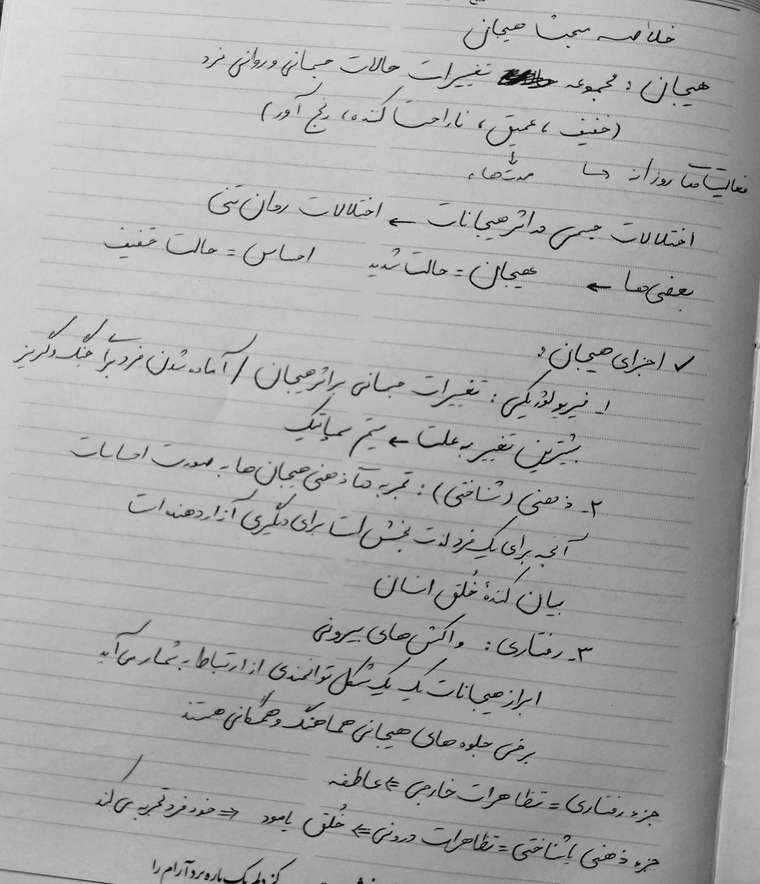 خلاصه مبحث هیجان
هیجان : مجموعه تغییرات حالات جسمانی و روانی فرد
(خفیف ، عمیق ، ناراحت کننده ، رنج آور)
فعالیت‌های روزانه
اختلالات جسمی در اثر هیجانات ← اختلالات روان تنی
بعضی‌ها ← هیجان = حالت شدید احساس = حالت خفیف
✓ اجزای هیجان :
۱- فیزیولوژیکی : تغییرات جسمانی بر اثر هیجان / آماده شدن فرد برای جنگ و گریز
بیشترین تغییر به علت ← سیستم سمپاتیک
۲- ذهنی (شناختی) : تجربه‌های ذهنی هیجان‌ها به صورت احساسات
آنچه برای یک فرد لذت بخش است برای دیگری آزار دهنده است
بیان کنندهٔ خُلق انسان
۳- رفتاری : واکنش‌های بیرونی
ابراز هیجانات یک شکل توانمندی از ارتباط به شمار می‌آید
برخی جلوه های هیجانی هماهنگ و همگانی هستند
جزء رفتاری = تظاهرات خارجی ⇐ عاطفه
جزء ذهنی یا شناختی = تظاهرات درونی ⇐ خُلق یا مود ⇒ خود فرد تجربه می‌کند
یک باره برو آرام را